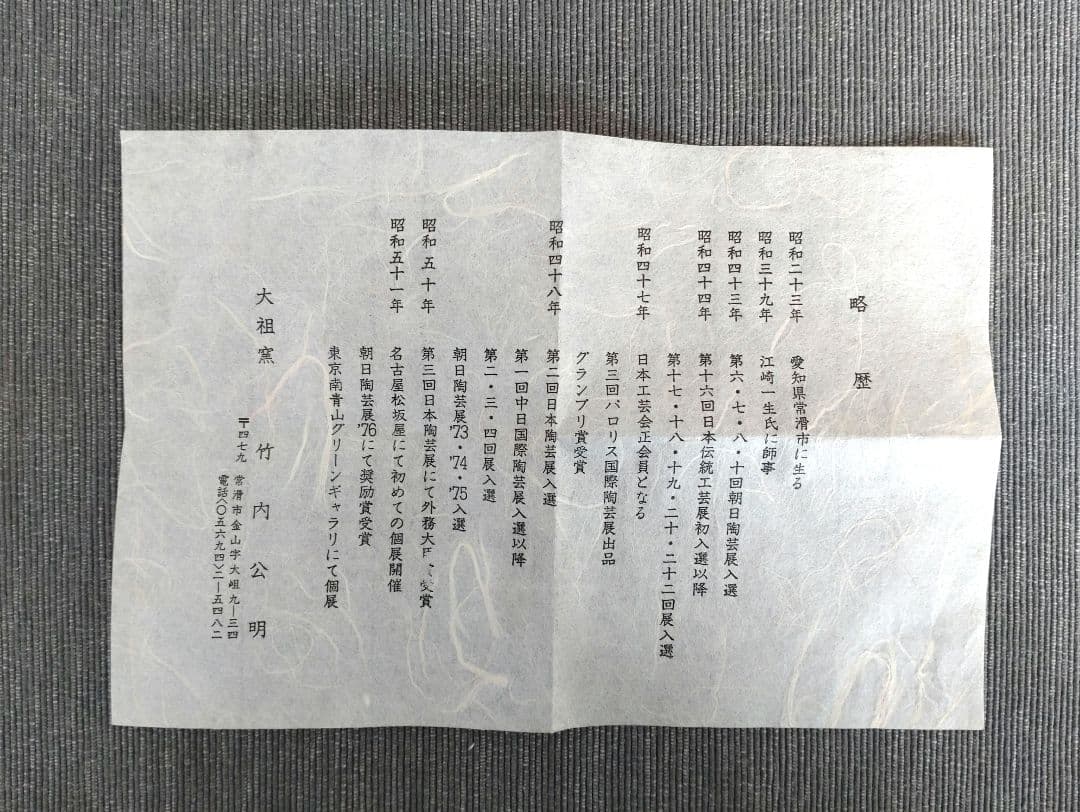 略歴
昭和二十三年 愛知県常滑市に生る
昭和三十九年 江崎一生氏に師事
昭和四十三年 第六・七・八・十回朝日陶芸展入選
昭和四十四年 第十六回日本伝統工芸展初入選以降
第十七・十八・十九・二十・二十二回展入選
昭和四十七年 日本工芸会正会員となる
第三回バロリス国際陶芸展出品
グランプリ賞受賞
昭和四十八年 第二回日本陶芸展入選
第一回中日国際陶芸展入選以降
第二・三・四回展入選
朝日陶芸展'73・'74・'75入選
昭和五十年 第三回日本陶芸展にて外務大受賞
昭和五十一年 名古屋松坂屋にて初めての個展開催
朝日陶芸展'76にて奨励賞受賞
東京南青山グリーンギャラリにて個展
大祖窯 竹内公明
〒四七九 常滑市金山字大岨九ー三四
電話〈〇五六九四〉二ー五四八二